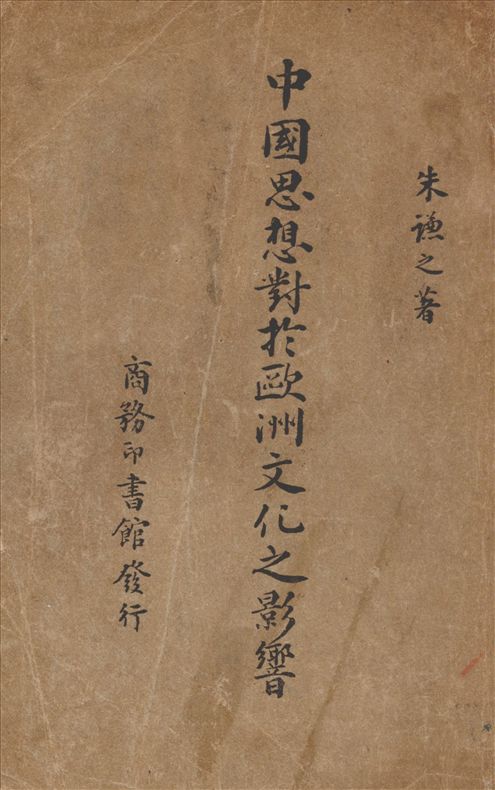 朱謙之著
中國思想對於歐洲文化之影響
商務印書館發行